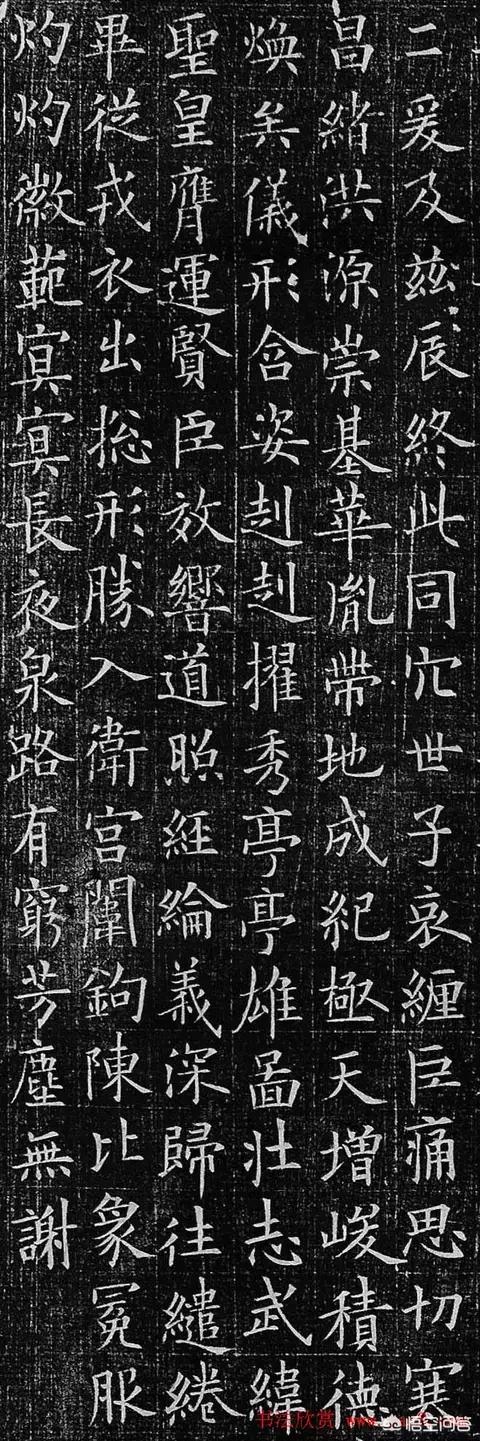 二爰及兹辰終此同穴世子哀纏巨痛思切寒
昌緒洪源崇基華胤帶地成紀極天增峻積德
煥矣儀形含姿赳赳擢秀亭亭雄啚壯志武緯
聖皇膺運賢臣效響道照經綸義深歸往繾綣
畢從戎衣出揔形勝入衛宫闈鉤陳比象冕服
灼灼徽範㝠㝠長夜泉路有窮芳塵無謝
书法欣赏
悟空问答